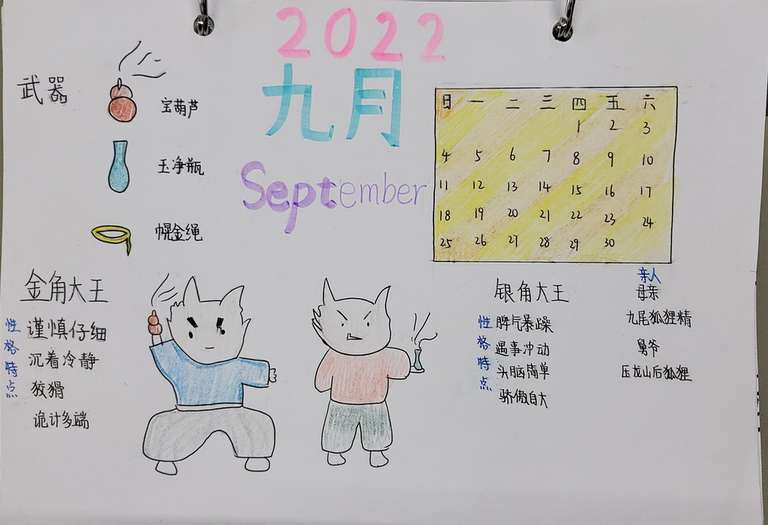 2022
九月
September
武器
宝葫芦
玉净瓶
幌金绳
日 一 二 三 四 五 六
1 2 3
4 5 6 7 8 9 10
11 12 13 14 15 16 17
18 19 20 21 22 23 24
25 26 27 28 29 30
金角大王
性格特点
谨慎仔细
沉着冷静
狡猾
诡计多端
银角大王
性格特点
脾气暴躁
遇事冲动
头脑简单
骄傲自大
亲人
母亲
九尾狐狸精
舅爷
压龙山后狐狸